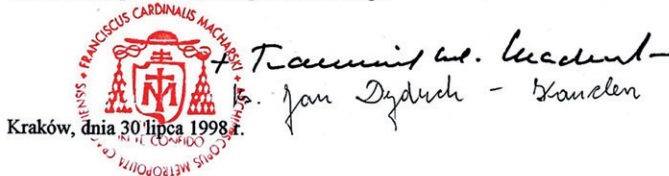 FRANCISCUS CARDINALIS MACHARSKI + ARCHIEPISCOPUS METROPOLITA CRACOVIENSIS +
IN TE CONFIDO
+ Franciszek kard. Macharski
ks. Jan Dyduch - Kanclerz
Kraków, dnia 30 lipca 1998 r.